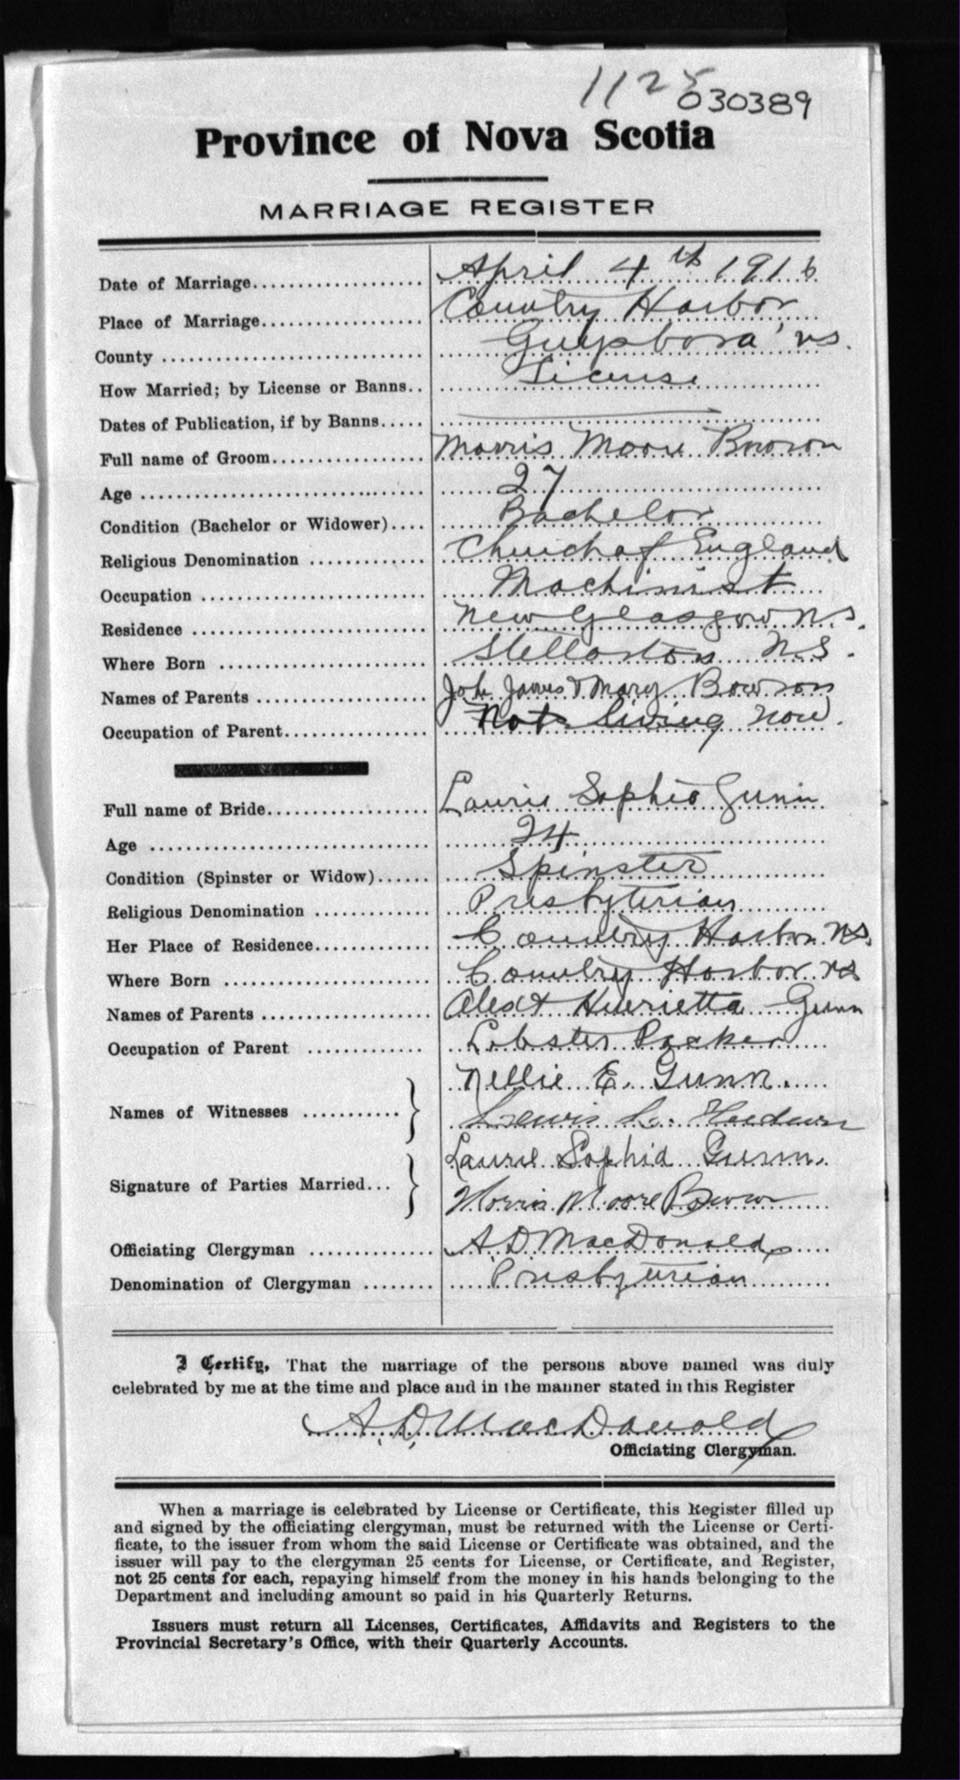 1125
030389
Province of Nova Scotia
MARRIAGE REGISTER
Date of Marriage April 4th 1916
Place of Marriage Country Harbor
County Guysboro' N.S.
How Married; by License or Banns License
Dates of Publication, if by Banns
Full name of Groom Morris Moore Bowron
Age 27
Condition (Bachelor or Widower) Bachelor
Religious Denomination Church of England
Occupation Machinist
Residence New Glasgow N.S.
Where Born Stellarton N.S.
Names of Parents James & Mary Bowron
Occupation of Parent Not living now.
Full name of Bride Laurie Sophia Gunn
Age 24
Condition (Spinster or Widow) Spinster
Religious Denomination Presbyterian
Her Place of Residence Country Harbor N.S.
Where Born Country Harbor N.S.
Names of Parents Alex & Henrietta Gunn
Occupation of Parent Lobster Packer
Nellie E. Gunn.
Names of Witnesses Lewis
Laurie Sophia Gunn.
Signature of Parties Married Morris Moore Bowron
Officiating Clergyman A. D. MacDonald
Denomination of Clergyman Presbyterian
I Certify, That the marriage of the persons above named was duly
celebrated by me at the time and place and in the manner stated in this Register
A. D. MacDonald
Officiating Clergyman.
When a marriage is celebrated by License or Certificate, this Register filled up
and signed by the officiating clergyman, must be returned with the License or Certi-
ficate, to the issuer from whom the said License or Certificate was obtained, and the
issuer will pay to the clergyman 25 cents for License, or Certificate, and Register,
not 25 cents for each, repaying himself from the money in his hands belonging to the
Department and including amount so paid in his Quarterly Returns.
Issuers must return all Licenses, Certificates, Affidavits and Registers to the
Provincial Secretary's Office, with their Quarterly Accounts.